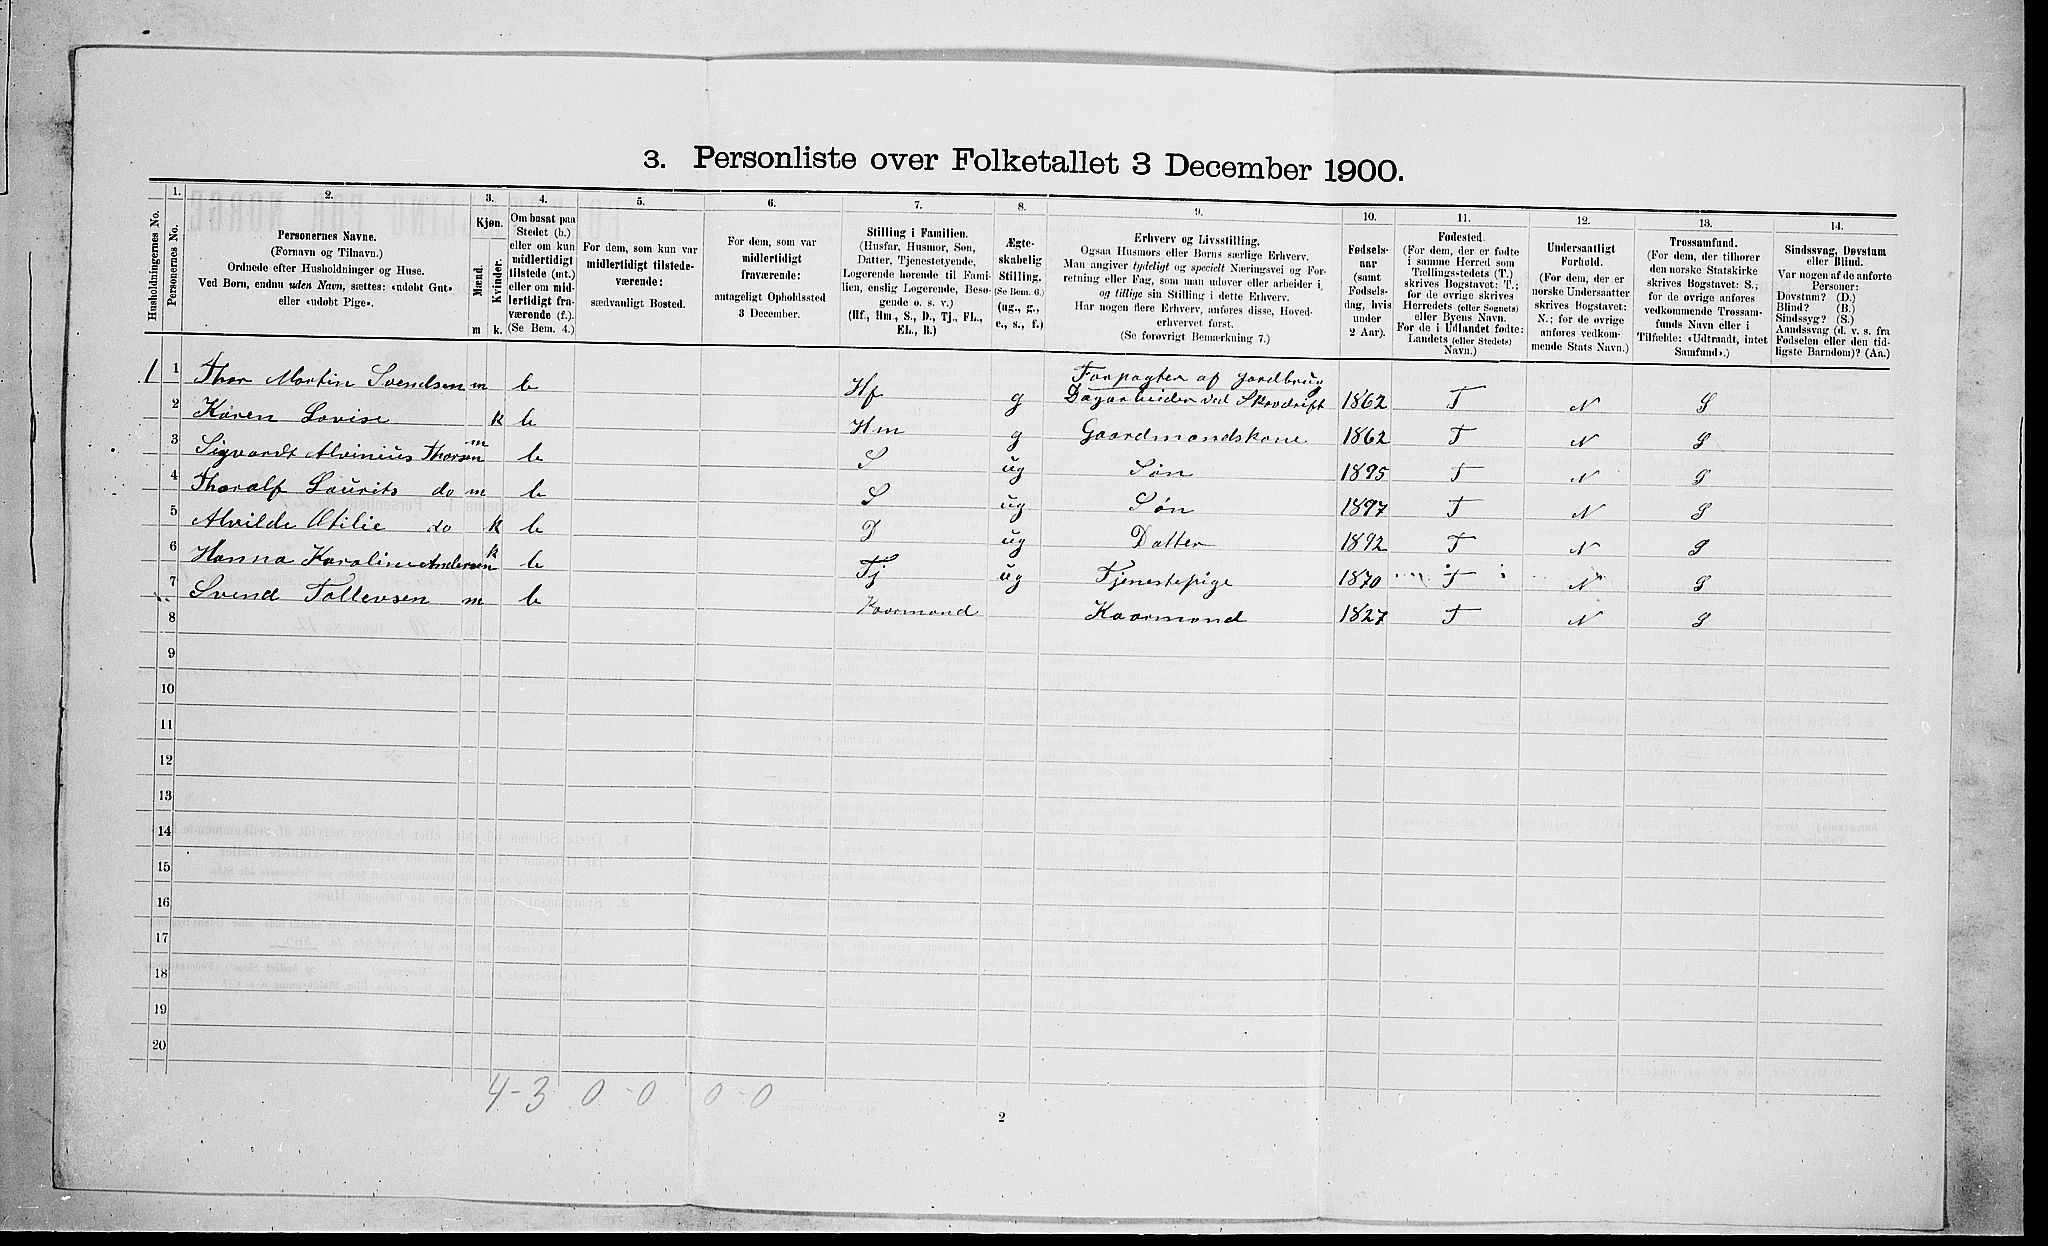 3. Personliste over Folketallet 3 December 1900.
Husholdningernes No.
1. Personernes No.
2. Personernes Navne.
(Fornavn og Tilnavn.)
Ordnede efter Husholdninger og Huse.
Ved Børn, endnu uden Navn, sættes: «udobt Gut»
eller «udobt Pige».
3. Kjøn.
Mænd. Kvinder.
m k.
4. Om bosat paa
Stedet (b.)
eller om kun
midlertidigt
tilstede (mt.)
eller om mid-
lertidigt fra-
værende (f.).
(Se Bem. 4.)
5. For dem, som kun var
midlertidigt tilstede-
værende:
sædvanligt Bosted.
6. For dem, som var
midlertidigt
fraværende:
antageligt Opholdssted
3 December.
7. Stilling i Familien.
(Husfar, Husmor, Søn,
Datter, Tjenestetyende,
Logerende hørende til Fami-
lien, enslig Logerende, Besø-
gende o. s. v.)
(Hf., Hm., S., D., Tj., FL.,
EL., B.)
8. Ægte-
skabelig
Stilling.
(Se Bem. 6.)
(ug., g.,
e., s., f.)
9. Erhverv og Livsstilling.
Ogsaa Husmors eller Børns særlige Erhverv.
Man angiver tydeligt og specielt Næringsvei og For-
retning eller Fag, som man udover eller arbeider i,
og tillige sin Stilling i dette Erhverv.
Har nogen flere Erhverv, anføres disse, Hoved-
erhvervet først.
(Se forøvrigt Bemærkning 7.)
10. Fødsels-
aar
(samt
Fødsels-
dag, hvis
under
2 Aar).
11. Fødested.
(For dem, der er fødte
i samme Herred som
Tællingsstedets (T.)
skrives Bogstavet: T.;
for de øvrige skrives
Herredets (eller Sognets)
eller Byens Navn.
For de i Udlandet fødte:
Landets (eller Stedets)
Navn.)
12. Undersaatligt
Forhold.
(For dem, der er
norske Undersaatter
skrives Bogstavet:
N.; for de øvrige
anføres vedkom-
mende Stats Navn.)
13. Trossamfund.
(For dem, der tilhører
den norske Statskirke
skrives Bogstavet: S.;
for de øvrige anføres
vedkommende Trossam-
funds Navn eller i
Tilfælde: «Udtraadt, intet
Samfund».)
14. Sindssvag, Døvstum
eller Blind.
Var nogen af de anførte
Personer:
Døvstum? (D.)
Blind? (B.)
Sindssyg? (S.)
Aandssvag (d. v. s. fra
Fødselen eller den tid-
ligste Barndom)? (Aa.)
1 1 Thor Martin Svendsen m b Hf g Forpagter af Jordbrug
Dagarbeider ved Skovdrift 1862 T N S
2 Karen Lovise k b Hm g Gaardmandskone 1862 T N S
3 Sigvardt Alvinius Thorsen m b S ug Søn 1895 T N S
4 Thoralf Laurits do m b S ug Søn 1897 T N S
5 Alvilde Otilie do k b D ug Datter 1892 T N S
6 Hanna Karoline Andersen k b Tj ug Tjenestepige 1870 T N S
7 Svend Tollevsen m b Kaarmand Kaarmand 1827 T N S
8
9
10
11
12
13
14
15
16
17
18
19
20
4-3 0-0 0-0
2